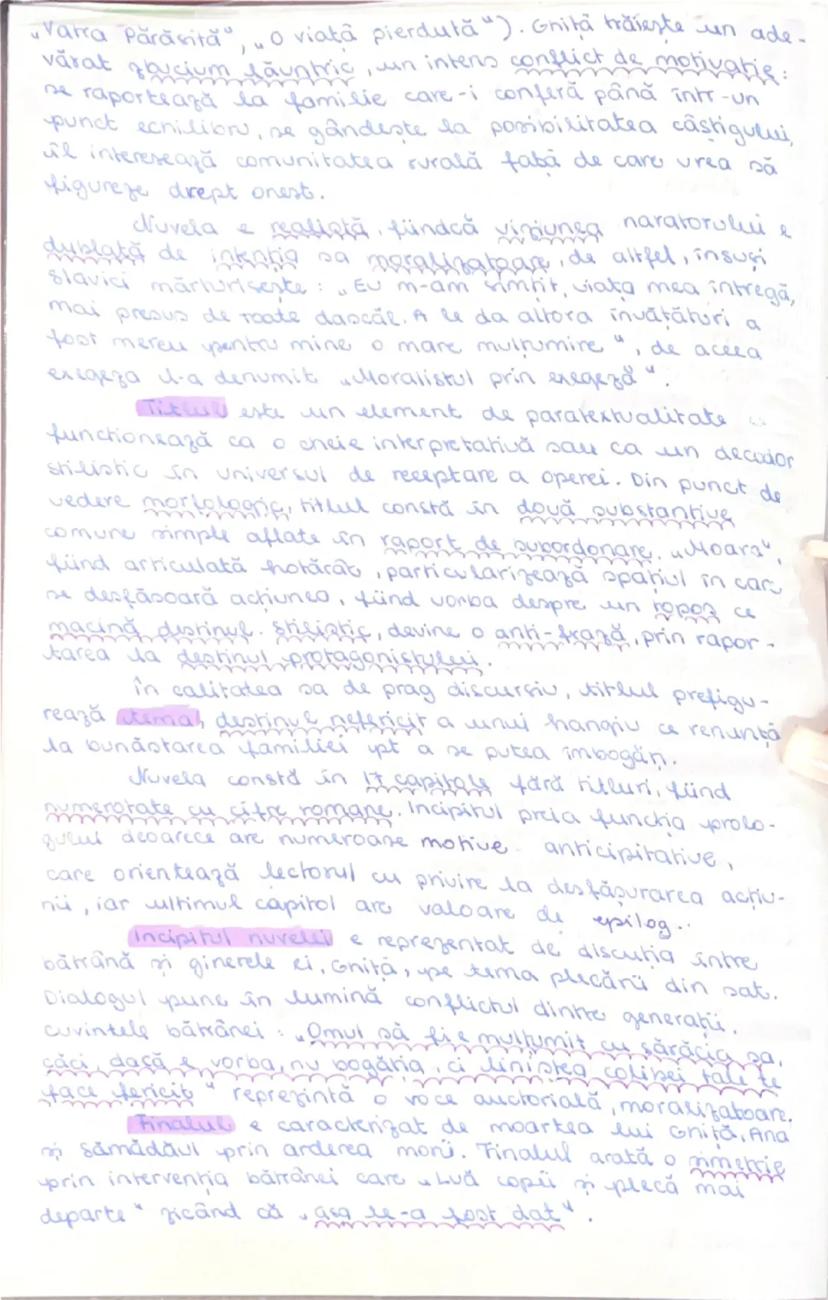 „Vatra Părăsită", „O viață pierdută"). Ghiță trăiește un ade-
vărat zbucium lăuntric, un intens conflict de motivație:
se raportează la familie care-i conferă până într-un
punct echilibru, se gândește la posibilitatea câștigului,
îl interesează comunitatea rurală față de care vrea să
figureze drept onest.
Nuvela e realistă, fiindcă viziunea naratorului e
dublată de intenția sa moralizatoare, de altfel, însuși
Slavici mărturisește: „Eu m-am simțit, viața mea întregă,
mai presus de toate dascăl. A le da altora învățături a
fost mereu pentru mine o mare mulțumire", de aceea
exegeza l-a denumit „Moralistul prin exegeză".
Titlul este un element de paratextualitate
funcționează ca o cheie interpretativă sau ca un decodor
stilistic în universul de receptare a operei. Din punct de
vedere morfologic, titlul constă în două substantive
comune simple aflate în raport de subordonare. „Moara",
fiind articulată hotărât, particularizează spațiul în care
se desfășoară acțiunea, fiind vorba despre un topos ce
macină destinul. Stilistic, devine o anti-frază, prin rapor-
tarea la destinul protagonistului.
În calitatea sa de prag discursiv, titlul prefigu-
rează tema, destinul nefericit a unui hangiu ce renunță
la bunăstarea familiei pt a se putea îmbogăți.
Nuvela constă în 17 capitole fără titluri, fiind
numerotate cu cifre romane. Incipitul preia funcția prolo-
gului deoarece are numeroase motive anticipitative,
care orientează lectorul cu privire la desfășurarea acțiu-
nii, iar ultimul capitol are valoare de epilog..
Incipitul nuvelei e reprezentat de discuția între
bătrână și ginerele ei, Ghiță, pe tema plecării din sat.
Dialogul pune în lumină conflictul dintre generații.
cuvintele bătrânei: „Omul să fie mulțumit cu sărăcia sa,
căci, dacă e vorba, nu bogăția, ci liniștea colibei tale te
face fericit" reprezintă o voce auctorială, moralizatoare.
Finalul e caracterizat de moartea lui Ghiță, Ana
și sămădăul prin arderea morii. Finalul arată o simetrie
prin intervenția bătrânei care „Luă copiii și plecă mai
departe" zicând că „așa le-a fost dat".